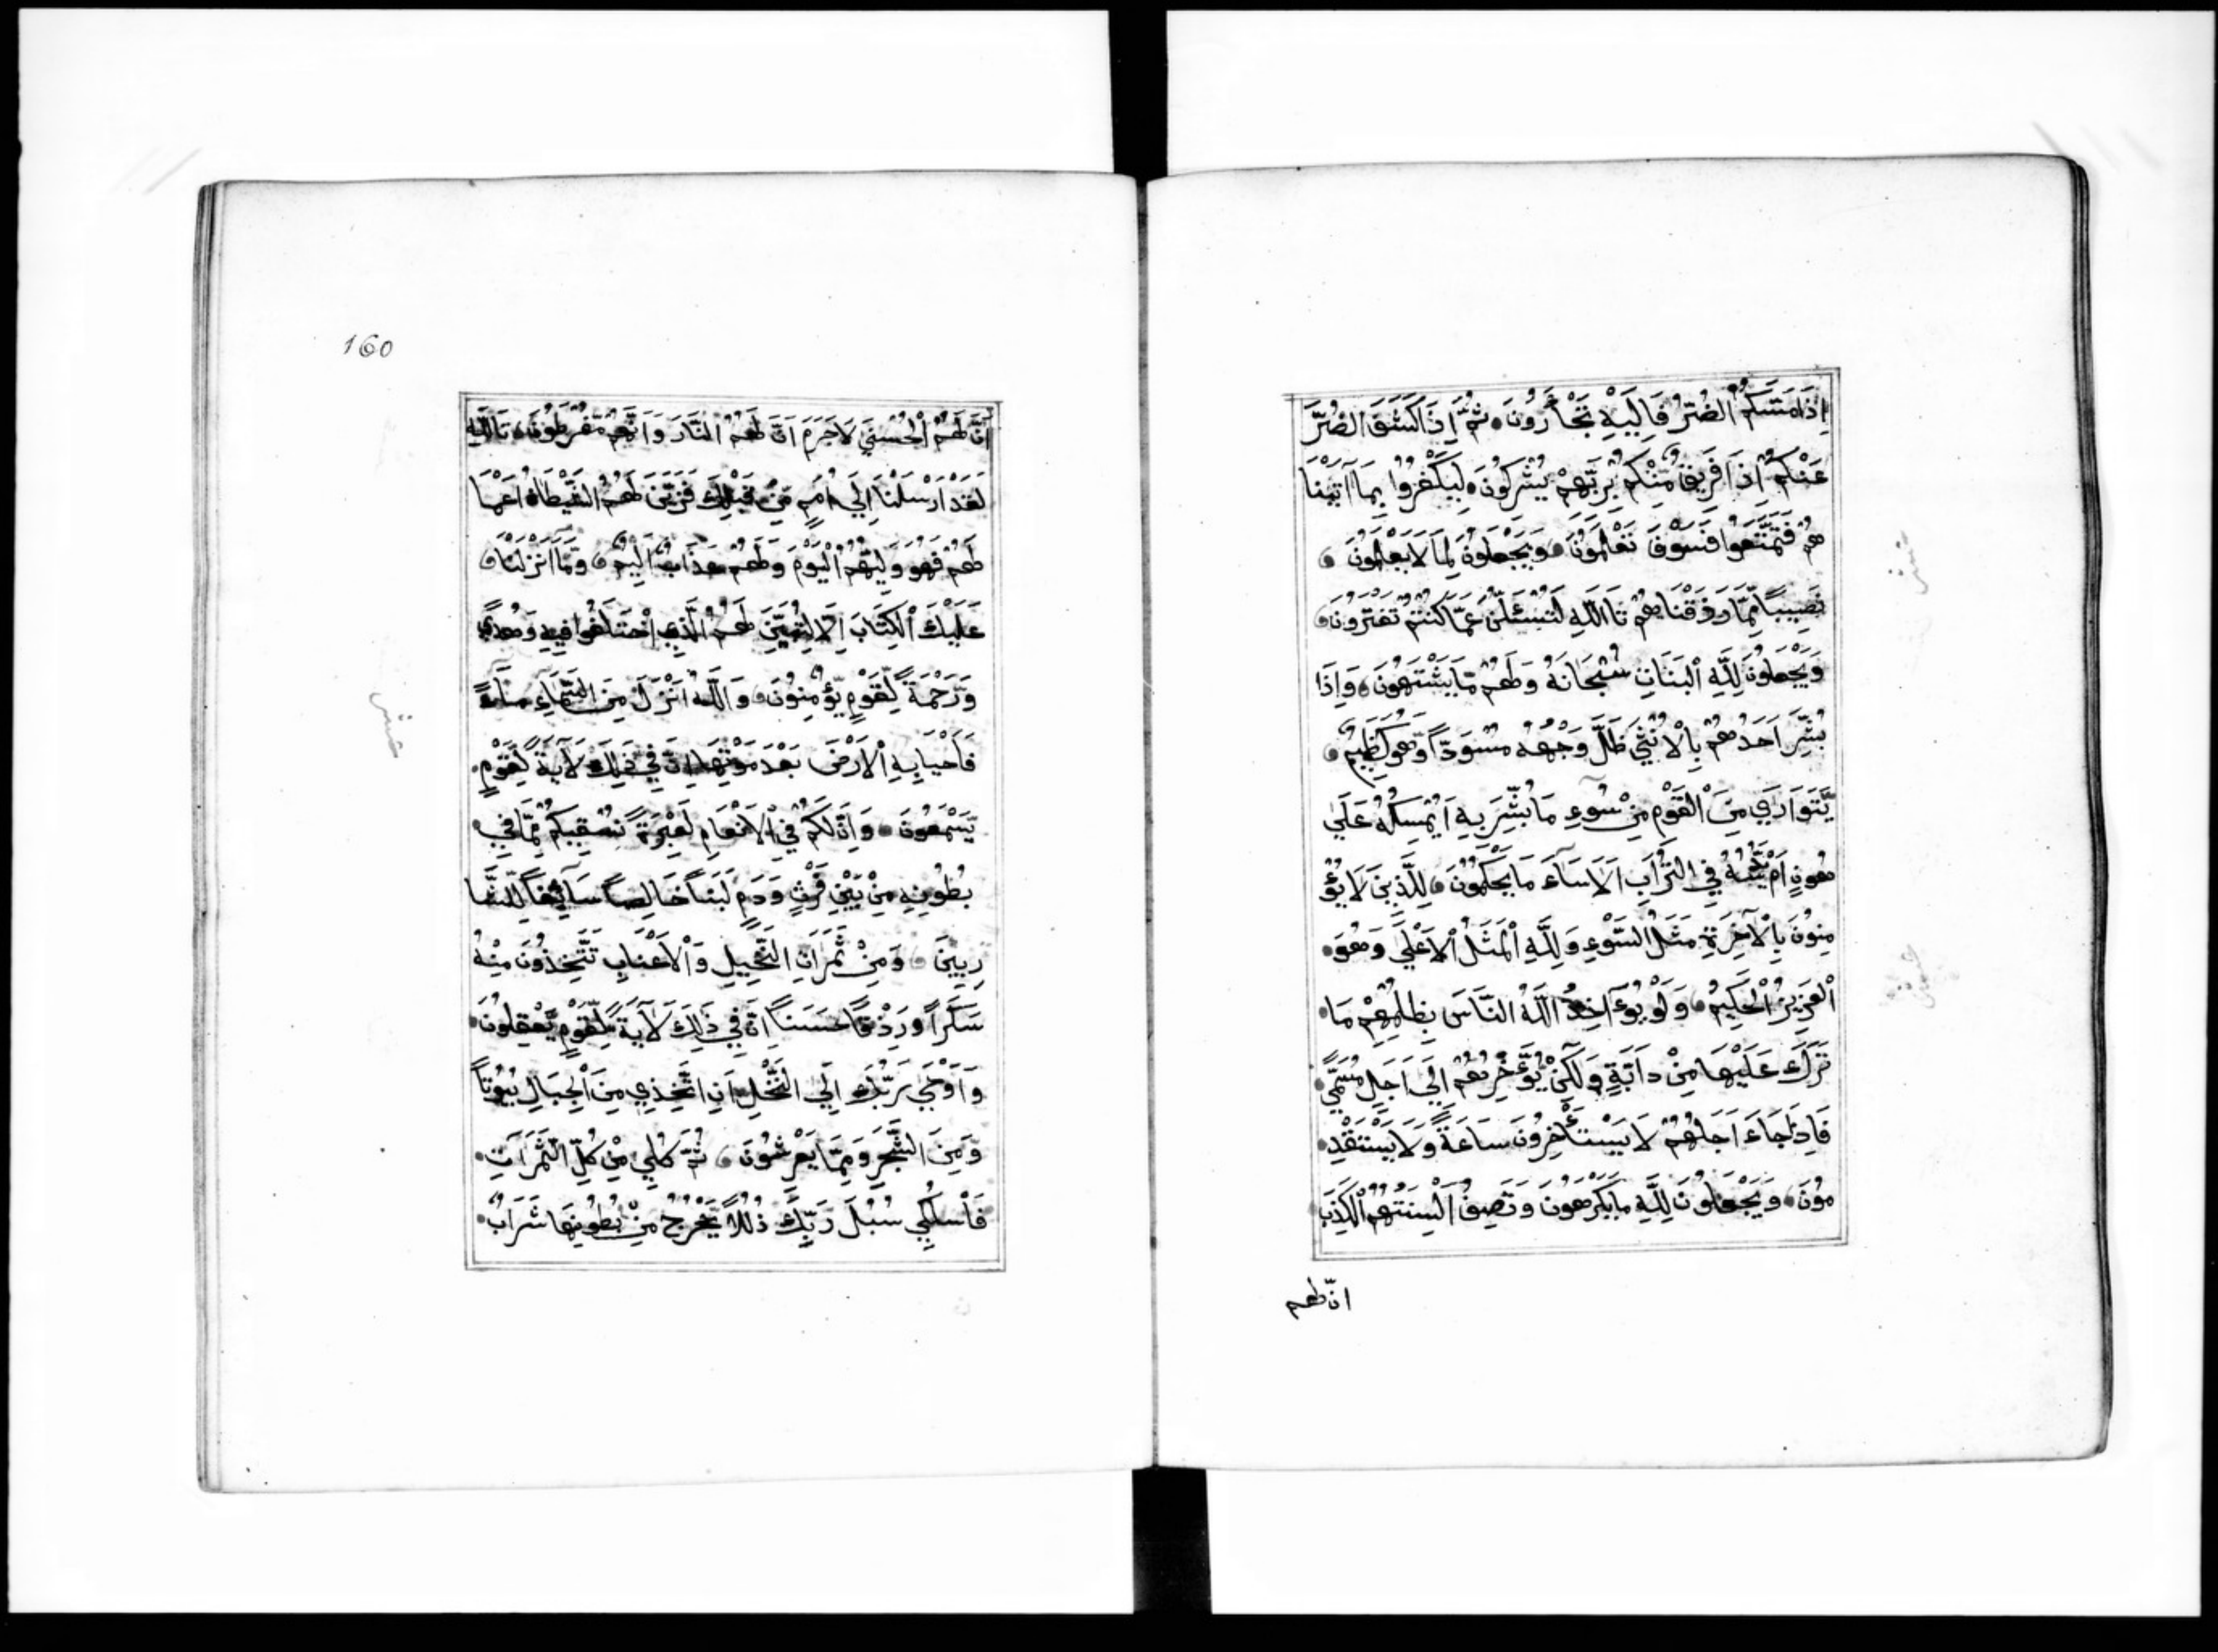 اِذَا مَسَّكُمُ الضُّرُّ فَاِلَيْهِ تَجْأَرُونَ ثُمَّ اِذَا كَشَفَ الضُّرَّ
عَنْكُمْ اِذَا فَرِيقٌ مِّنْكُمْ بِرَبِّهِمْ يُشْرِكُونَ لِيَكْفُرُوا بِمَا آتَيْنَا
هُمْ فَتَمَتَّعُوا فَسَوْفَ تَعْلَمُونَ وَيَجْعَلُونَ لِمَا لَا يَعْلَمُونَ
نَصِيبًا مِّمَّا رَزَقْنَاهُمْ تَاللَّهِ لَتُسْئَلُنَّ عَمَّا كُنْتُمْ تَفْتَرُونَ
وَيَجْعَلُونَ لِلَّهِ الْبَنَاتِ سُبْحَانَهُ وَلَهُمْ مَّا يَشْتَهُونَ وَاِذَا
بُشِّرَ اَحَدُهُمْ بِالْاُنْثَي ظَلَّ وَجْهُهُ مُسْوَدًّا وَّهُوَ كَظِيمٌ
يَتَوَارَي مِنَ الْقَوْمِ مِنْ سُوءِ مَا بُشِّرَ بِهِ اَيُمْسِكُهُ عَلَي
هُونٍ اَمْ يَدُسُّهُ فِي التُّرَابِ اَلَا سَاءَ مَا يَحْكُمُونَ لِلَّذِينَ لَا يُؤْ
مِنُونَ بِالْآخِرَةِ مَثَلُ السَّوْءِ وَلِلَّهِ الْمَثَلُ الْاَعْلَي وَهُوَ
الْعَزِيزُ الْحَكِيمُ وَلَوْ يُؤَاخِذُ اللَّهُ النَّاسَ بِظُلْمِهِمْ مَا
تَرَكَ عَلَيْهَا مِنْ دَابَّةٍ وَلَكِنْ يُؤَخِّرُهُمْ اِلَي اَجَلٍ مُسَمًّي
فَاِذَا جَاءَ اَجَلُهُمْ لَا يَسْتَأْخِرُونَ سَاعَةً وَلَا يَسْتَقْدِ
مُونَ وَيَجْعَلُونَ لِلَّهِ مَا يَكْرَهُونَ وَتَصِفُ اَلْسِنَتُهُمُ الْكَذِبَ
انّ لهم
160
اَنَّ لَهُمُ الْحُسْنَي لَاجَرَمَ اَنَّ لَهُمُ النَّارَ وَاَنَّهُمْ مُّفْرَطُونَ تَاللَّهِ
لَقَدْ اَرْسَلْنَا اِلَي اُمَمٍ مِّنْ قَبْلِكَ فَزَيَّنَ لَهُمُ الشَّيْطَانُ اَعْمَا
لَهُمْ فَهُوَ وَلِيُّهُمُ الْيَوْمَ وَلَهُمْ عَذَابٌ اَلِيمٌ وَمَا اَنْزَلْنَا
عَلَيْكَ الْكِتَابَ اِلَّا لِتُبَيِّنَ لَهُمُ الَّذِي اخْتَلَفُوا فِيهِ وَهُدًي
وَّرَحْمَةً لِّقَوْمٍ يُّؤْمِنُونَ وَاللَّهُ اَنْزَلَ مِنَ السَّمَاءِ مَاءً
فَاَحْيَا بِهِ الْاَرْضَ بَعْدَ مَوْتِهَا اِنَّ فِي ذَلِكَ لَآيَةً لِّقَوْمٍ
يَّسْمَعُونَ وَاِنَّ لَكُمْ فِي الْاَنْعَامِ لَعِبْرَةً نُسْقِيكُمْ مِمَّا فِي
بُطُونِهِ مِنْ بَيْنِ فَرْثٍ وَدَمٍ لَبَنًا خَالِصًا سَائِغًا لِّلشَّا
رِبِينَ وَمِنْ ثَمَرَاتِ النَّخِيلِ وَالْاَعْنَابِ تَتَّخِذُونَ مِنْهُ
سَكَرًا وَرِزْقًا حَسَنًا اِنَّ فِي ذَلِكَ لَآيَةً لِّقَوْمٍ يَّعْقِلُونَ
وَاَوْحَي رَبُّكَ اِلَي النَّحْلِ اَنِ اتَّخِذِي مِنَ الْجِبَالِ بُيُوتًا
وَّمِنَ الشَّجَرِ وَمِمَّا يَعْرِشُونَ ثُمَّ كُلِي مِنْ كُلِّ الثَّمَرَاتِ
فَاسْلُكِي سُبُلَ رَبِّكِ ذُلُلًا يَخْرُجُ مِنْ بُطُونِهَا شَرَابٌ